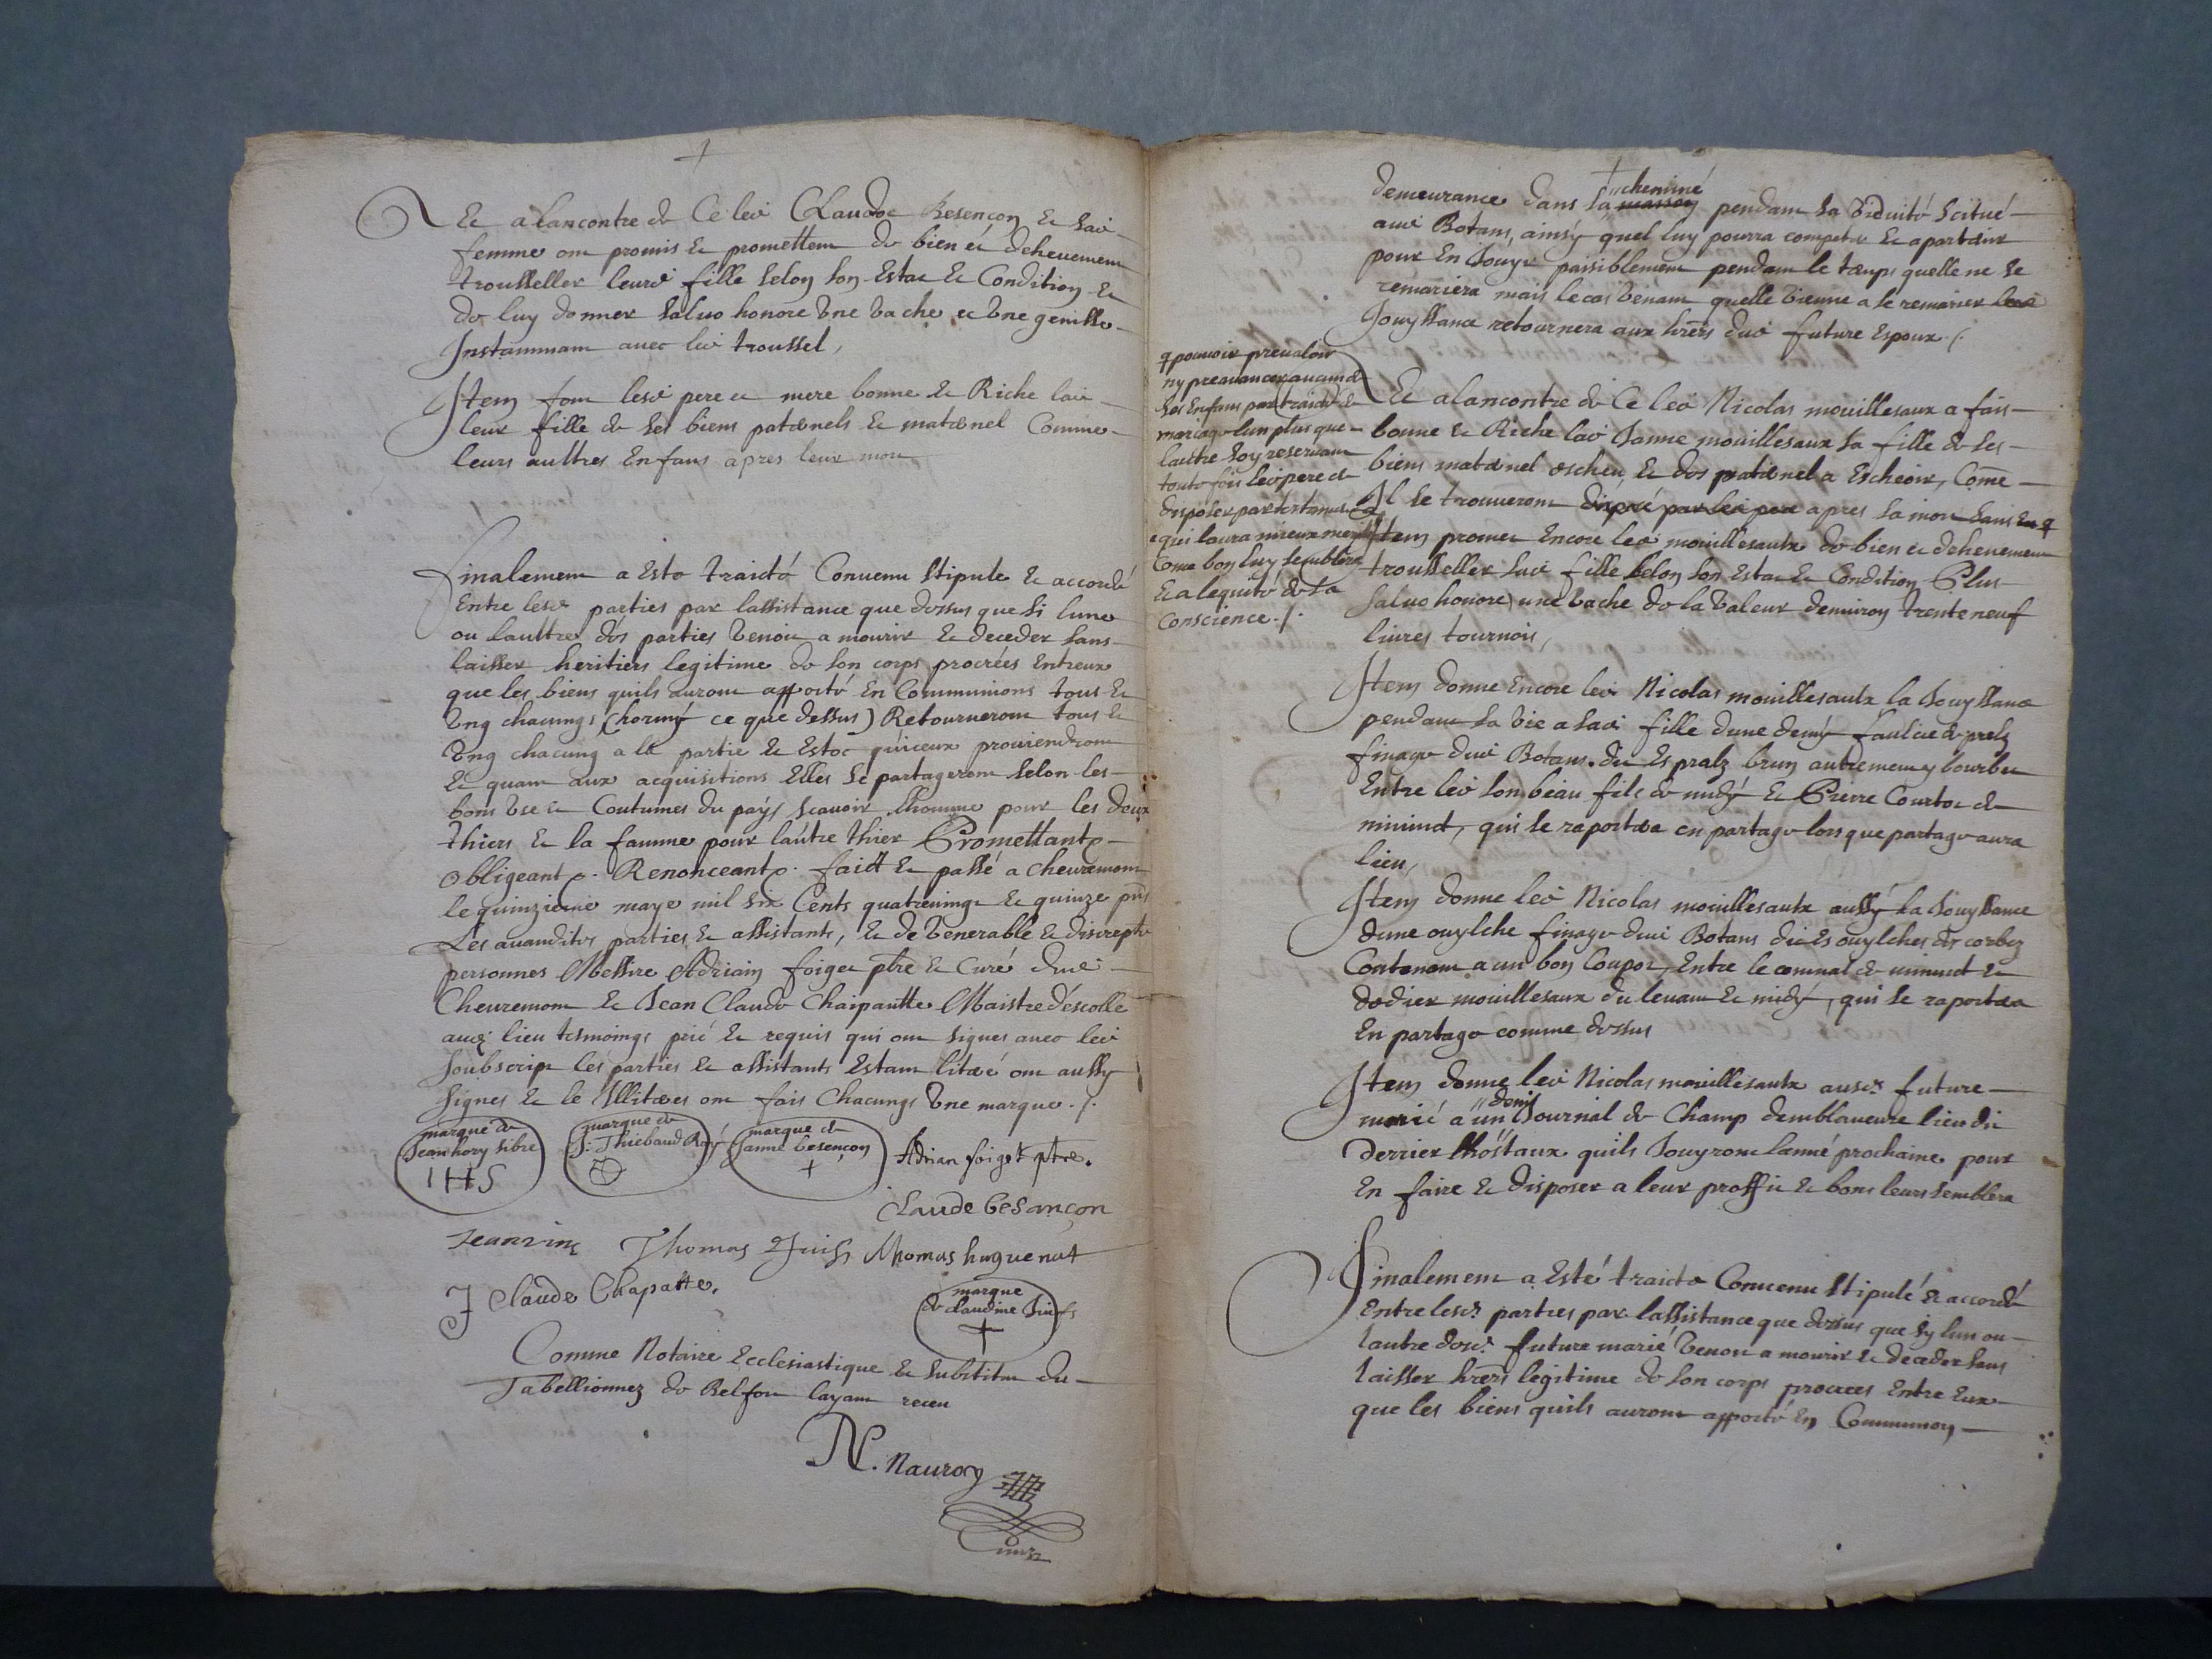 Et a lancontre de Ce led Claudoe Besençon et sad
femme ont promis et promettent de bien et dehevement
trousseller leurd fille selon son Estat et Condition et
de luy donner salvo honore Une vache et Une genisse
Instamment avec led troussel,
Item font lesd pere et mere bonne et Riche lad
leur fille de ses biens paternels et maternel Comme
leurs aultres Enfans apres leur mort
Finalement a Este traicté Convenu stipule et accordé
Entre lesd parties par lassistance que dessus que si lune
ou laultre des parties venoit a mourir et deceder sans
laisser heritiers legitime de son corps procrées Entreux
que les biens quils auront apporté En Communions tous et
Ung chacungs (hormy ce que dessus) Retourneront tous et
Ung chacung a le partie et Estoc quiceux proviendront
et quant aux acquisitions Elles se partageront selon les
bons Use et Coutumes du pays scavoir lhomme pour les deux
thiers et la famme pour lautre thier Promettant
obligeant Renonceant faict et passé a chevremont
le quinzieme maye mil six Cents quatrevingt et quinze pnts
Les avandites parties et assistants, et de Venerable et discrepte
personnes Messire Adriain foiget ptre et Curé dud
Chevremont et Jean Claude Chaipautte Maistre déscolle
aud lieu tesmoings prié et requis qui ont signes avec led
soubscript les parties et assistants Estant litéré ont aussy
signes et le Illiteres ont fais Chacungs Une marque ./.
marque de Jean hory sibre IHS
marque de J: Thiebaud Roy
marque de Janne besençon +
Adrian foiget ptre.
Claude besançon
Thomas Juif Thomas huguenat
J Claude Chapatte.
marque de Claudine Juifs +
Comme Notaire Ecclesiastique et substitut du
Tabellionnez de Belfort layant receu
N. Nauroy
demeurance dans sa masson cheminé pendant sa viduité scitué
aud Botans, ainsy quel luy pourra competer et apartenir
pour En Jouyr paisiblement pendant le temps quelle ne se
remariera mais le cas venant quelle vienne a se remarier
Jouyssance retournera aux hrers dud future Espoux ./.
Et alancontre de Ce led Nicolas mouillesaux a fais
bonne et Riche lad Janne mouillesaux sa fille de ses
biens maternel escheu, et des paternel a Escheoir, Come
Il se trouveront disposé par led pere apres sa mort sans
pouvoir prevaloir
ny preavancer aucun de
ses Enfans par traicté de
mariage lun plus que
lautre soy reservant
toute fois led pere de
disposer par testament
a qui laura mieux merité
Come bon luy semblera
Et a lequité de sa
Conscience ./.
Item promet Encore led mouillesaulx de bien et dehevement
trousseller sad fille selon son Estat et Condition Plus
(salvo honore) une vache de la valeur denviron trente neuf
livres tournois,
Item donne Encore led Nicolas mouillesaulx la Jouyssance
pendant sa vie a sad fille dune demy faulcie de prelz
finage dud Botans. dit Es pralz brun autrement bourbet
Entre led son beau fils de midy et Pierre Courtot de
minuict, qui se raportera en partage lors que partage aura
lieu,
Item donne led Nicolas mouillesaulx aussy la Jouyssance
dune ouylche finage dud Botans dit Es ouylches de corbez
Contenant a un bon Coupot, Entre le commal de minuict et
dedier mouillesaux du levant et midy, qui se raportera
En partage comme dessus
Item donne led Nicolas mouillesaulx ausd future
marié a un demy Journal de Champ demblaveure lieu dit
derrier lhostaux quils Jouyront lanné prochaine pour
En faire et disposer a leur proffit et bons leurs semblera
Finalement a Esté traicte Convenu stipulé et accordé
Entre lesd parties par lassistance que dessus que sy lun ou
lautre desd future marié venoit a mourir et deceder sans
laisser hrers legitime de son corps procrees Entre Eux
que les biens quils auront apporté En Communion